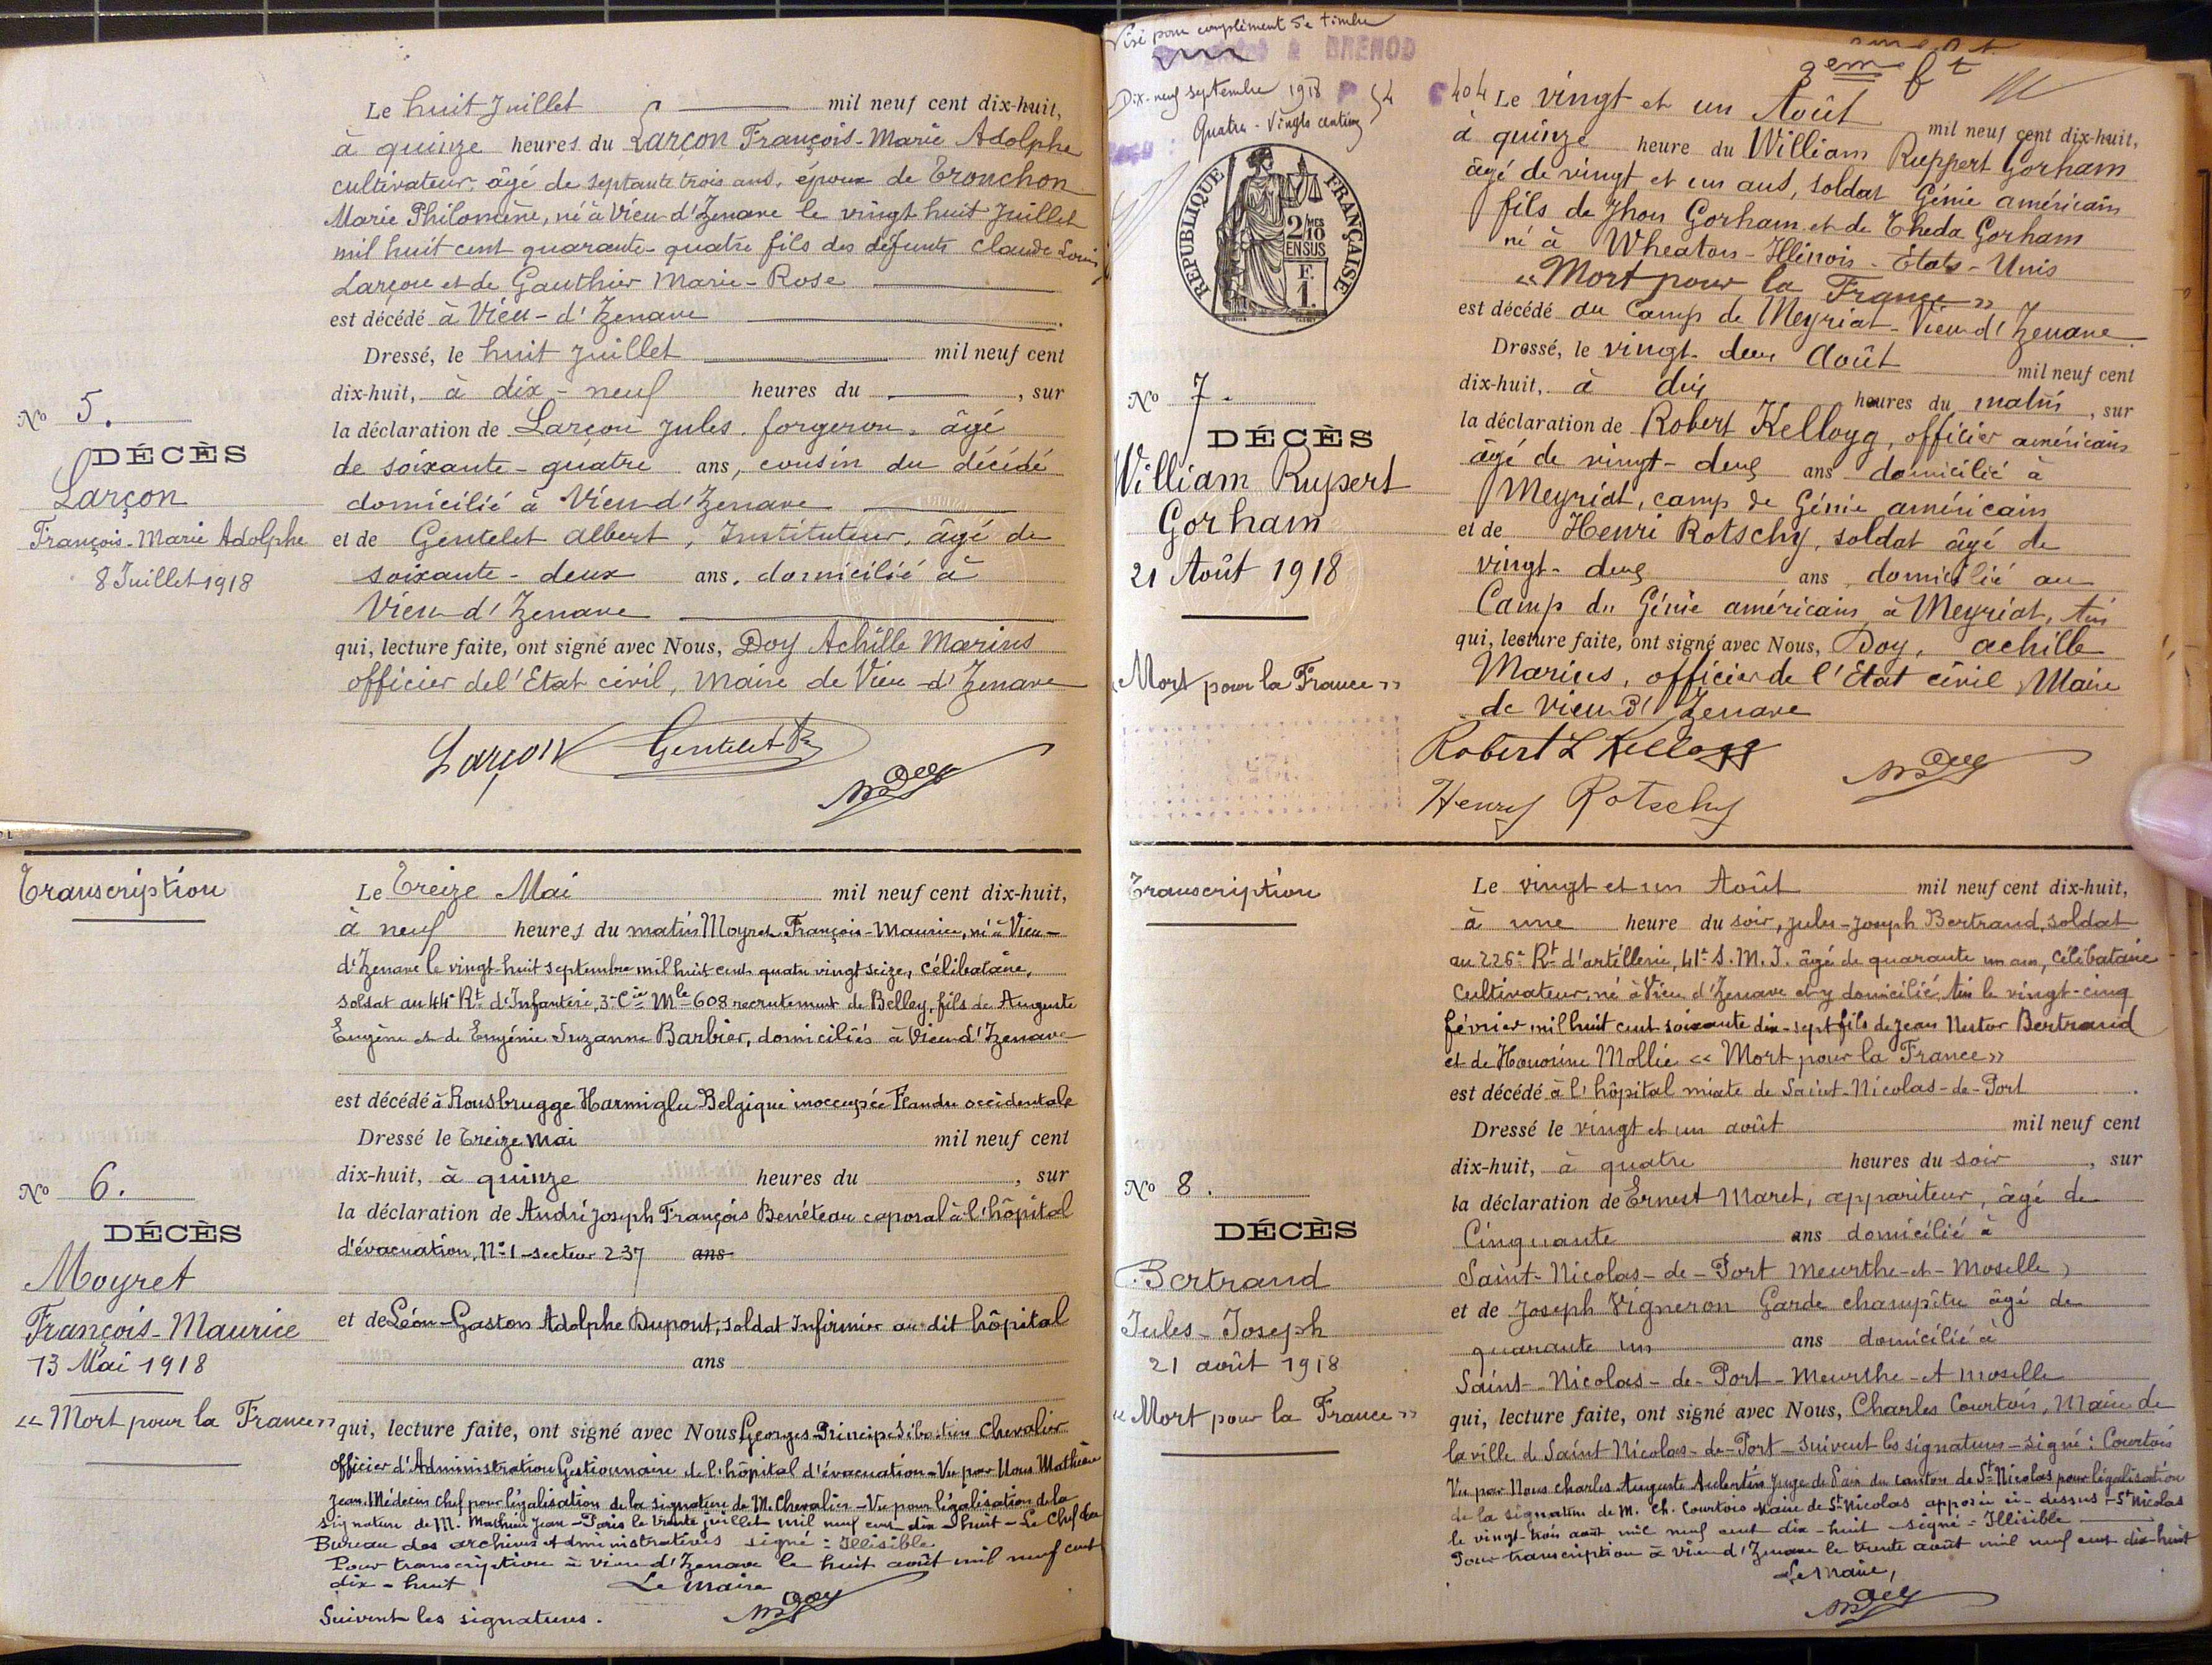 Le huit Juillet mil neuf cent dix-huit,
à quinze heures du Larçon François-Marie Adolphe
cultivateur, âgé de septante trois ans, époux de Tronchon
Marie Philomène, né à Vieu-d'Izenave le vingt huit Juillet
mil huit cent quarante-quatre fils des défunts Claude Louis
Larçon et de Gauthier Marie-Rose
est décédé à Vieu-d'Izenave
Dressé, le huit Juillet mil neuf cent
dix-huit, à dix-neuf heures du , sur
la déclaration de Larçon Jules, forgeron, âgé
de soixante-quatre ans, cousin du décédé
domicilié à Vieu d'Izenave
et de Gentelet Albert, Instituteur, âgé de
soixante-deux ans, domicilié à
Vieu d'Izenave
qui, lecture faite, ont signé avec Nous, Doy Achille Marius
officier de l'Etat civil, Maire de Vieu-d'Izenave
Larçon Gentelet
Doy
No 5.
DÉCÈS
Larçon
François-Marie Adolphe
8 Juillet 1918
Transcription
Le Treize Mai mil neuf cent dix-huit,
à neuf heures du matin Moyret François-Maurice, né à Vieu-
d'Izenave le vingt-huit septembre mil huit cent quatre vingt seize, célibataire,
soldat au 44e Rt d'Infanterie, 3e Cie Mle 608 recrutement de Belley, fils de Auguste
Eugène et de Eugénie Suzanne Barbier, domiciliés à Vieu d'Izenave
est décédé à Rousbrugge Harmiglu Belgique inoccupée Flandre occidentale
Dressé le Treize Mai mil neuf cent
dix-huit, à quinze heures du , sur
la déclaration de André Joseph François Benéteau caporal à l'hôpital
d'évacuation, No 1 - secteur 237 ans
et de Léon-Gaston Adolphe Dupont, soldat Infirmier au dit hôpital
ans
qui, lecture faite, ont signé avec Nous Georges Principe Sébastien Chevalier
officier d'Administration Gestionnaire de l'hôpital d'évacuation - Vu par Nous Mathieu
Jean Médecin Chef pour légalisation de la signature de M. Chevalier - Vu pour légalisation de la
signature de M. Mathieu Jean - Paris le trente juillet mil neuf cent dix-huit - Le Chef du
Bureau des archives administratives signé : Illisible
Pour transcription à Vieu d'Izenave le huit août mil neuf cent
dix-huit Le Maire
Doy
Suivent les signatures.
No 6.
DÉCÈS
Moyret
François-Maurice
13 Mai 1918
"Mort pour la France"
Visé pour complément de timbre
BRENOD
Dix-neuf septembre 1918 F 54 C 404
Quatre-Vingts centimes
RÉPUBLIQUE FRANÇAISE
2/10 MES
EN SUS
F.
1.
2eme Bt
Le vingt et un Août mil neuf cent dix-huit,
à quinze heure du William Ruppert Gorham
âgé de vingt et un ans, soldat Génie américain
fils de Jhon Gorham et de Theda Gorham
né à Wheaton-Illinois-Etats-Unis
"Mort pour la France"
est décédé au Camp de Meyriat-Vieu d'Izenave
Dressé, le vingt-deux Août mil neuf cent
dix-huit, à dix heures du matin, sur
la déclaration de Robert Kellogg, officier américain
âgé de vingt-deux ans domicilié à
Meyriat, camp de Génie américain
et de Henri Rotschy, soldat âgé de
vingt-deux ans domicilié au
Camp du Génie américain à Meyriat, Ain
qui, lecture faite, ont signé avec Nous, Doy, Achille
Marius, officier de l'Etat civil Maire
de Vieu d'Izenave
Robert L Kellogg
Doy
Henry Rotschy
No 7.
DÉCÈS
William Rupert
Gorham
21 Août 1918
"Mort pour la France"
Transcription
Le vingt et un Août mil neuf cent dix-huit,
à une heure du soir, Jules-Joseph Bertrand, soldat
au 226e Rt d'artillerie, 41e S.M.I. âgé de quarante un ans, célibataire
cultivateur, né à Vieu d'Izenave et y domicilié, Ain le vingt-cinq
février mil huit cent soixante dix-sept fils de Jean Nestor Bertrand
et de Honorine Mollié "Mort pour la France"
est décédé à l'hôpital mixte de Saint-Nicolas-de-Port
Dressé le vingt et un août mil neuf cent
dix-huit, à quatre heures du soir, sur
la déclaration de Ernest Maret, appariteur, âgé de
Cinquante ans domicilié à
Saint-Nicolas-de-Port Meurthe-et-Moselle,
et de Joseph Vigneron Garde champêtre âgé de
quarante un ans domicilié à
Saint-Nicolas-de-Port-Meurthe-et Moselle
qui, lecture faite, ont signé avec Nous, Charles Courtois, Maire de
la ville de Saint-Nicolas-de-Port - suivent les signatures - signé : Courtois
Vu par Nous Charles Auguste Juge de Paix du canton de St-Nicolas pour légalisation
de la signature de M. Ch. Courtois Maire de St-Nicolas apposée ci-dessus - St Nicolas
le vingt-trois août mil neuf cent dix-huit - signé : Illisible
Pour transcription à Vieu d'Izenave le trente août mil neuf cent dix-huit
Le Maire,
Doy
No 8.
DÉCÈS
Bertrand
Jules-Joseph
21 août 1918
"Mort pour la France"